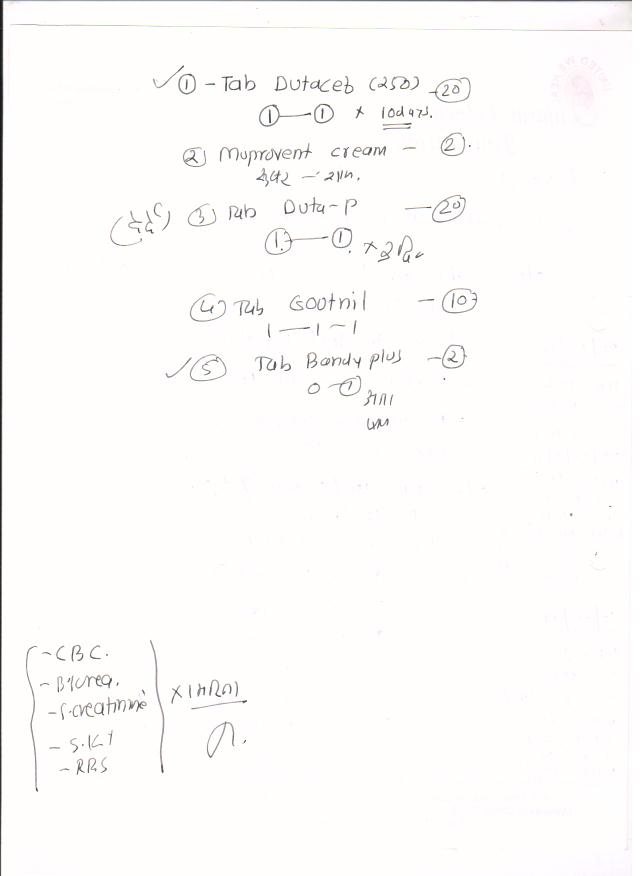 ✓ ① - Tab Dutaceb (250) - ⑳
① — ① × 10days.
② Muprovent cream - ②.
③ Tab Duta-P — ⑳
① — ① ×
④ Tab Gootnil - ⑩
1 — 1 - 1
✓ ⑤ Tab Bandy plus - ②
0 - ①
- CBC.
- B.Urea.
- S.creatinine
- S.K+
- RBS